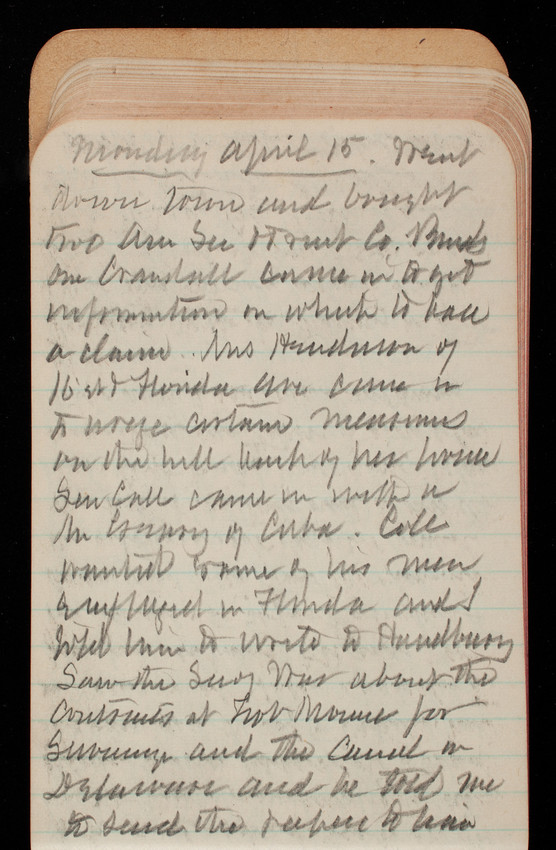 Monday April 15. Went
down town and bought
two Am Sec & Trust Co. Bonds
one Crandall came in to get
information on which to base
a claim. Mrs Henderson of
16 st & Florida Ave came in
to urge certain measures
on the hill back of her house
Sen Call came in with a
Mr of Cuba. Call
wanted some of his men
employed in Florida and I
told him to write to Handbury
Saw the Secy War about the
Contracts at Fort Monroe for
Sewerage and the Canal in
Delaware and he told me
to send the papers to him